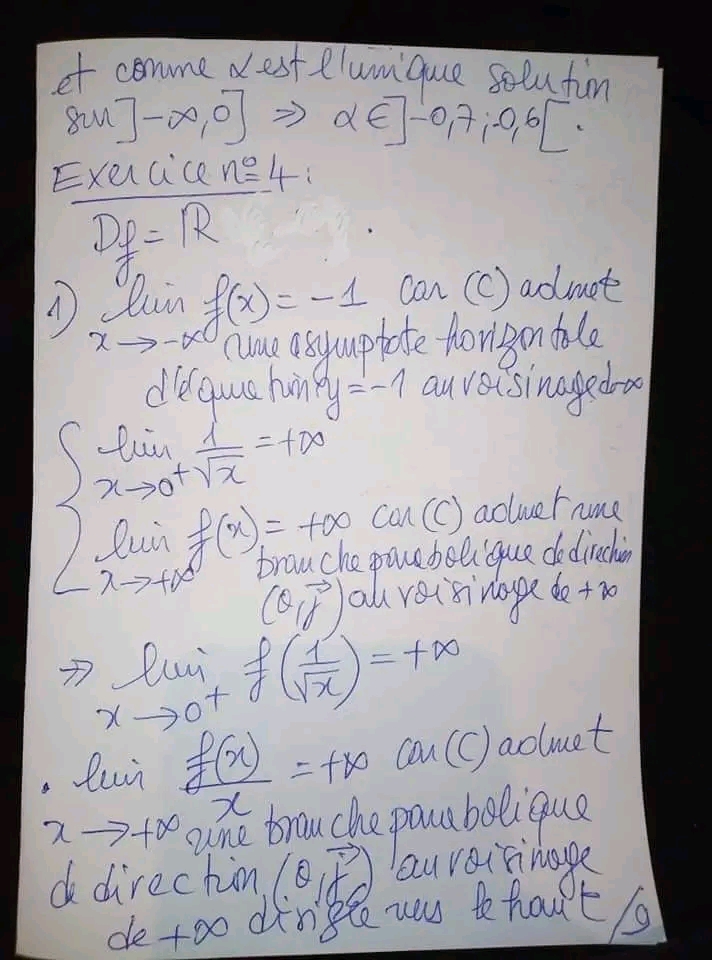 et comme α est l'unique solution
sur ]-∞,0] ⇒ α ∈ ]-0,7;-0,6[.
Exercice n°4:
Df = ℝ .
1) lim f(x) = -1 car (C) admet
x → -∞ une asymptote horizontale
d'équation y = -1 au voisinage de -∞
lim 1/√x = +∞
x → 0+
lim f(x) = +∞ car (C) admet une
x → +∞ branche parabolique de direction
(O,j⃗) au voisinage de +∞
⇒ lim f(1/√x) = +∞
x → 0+
. lim f(x)/x = +∞ car (C) admet
x → +∞ une branche parabolique
de direction (O,j⃗) au voisinage
de +∞ dirigée vers le haut /9